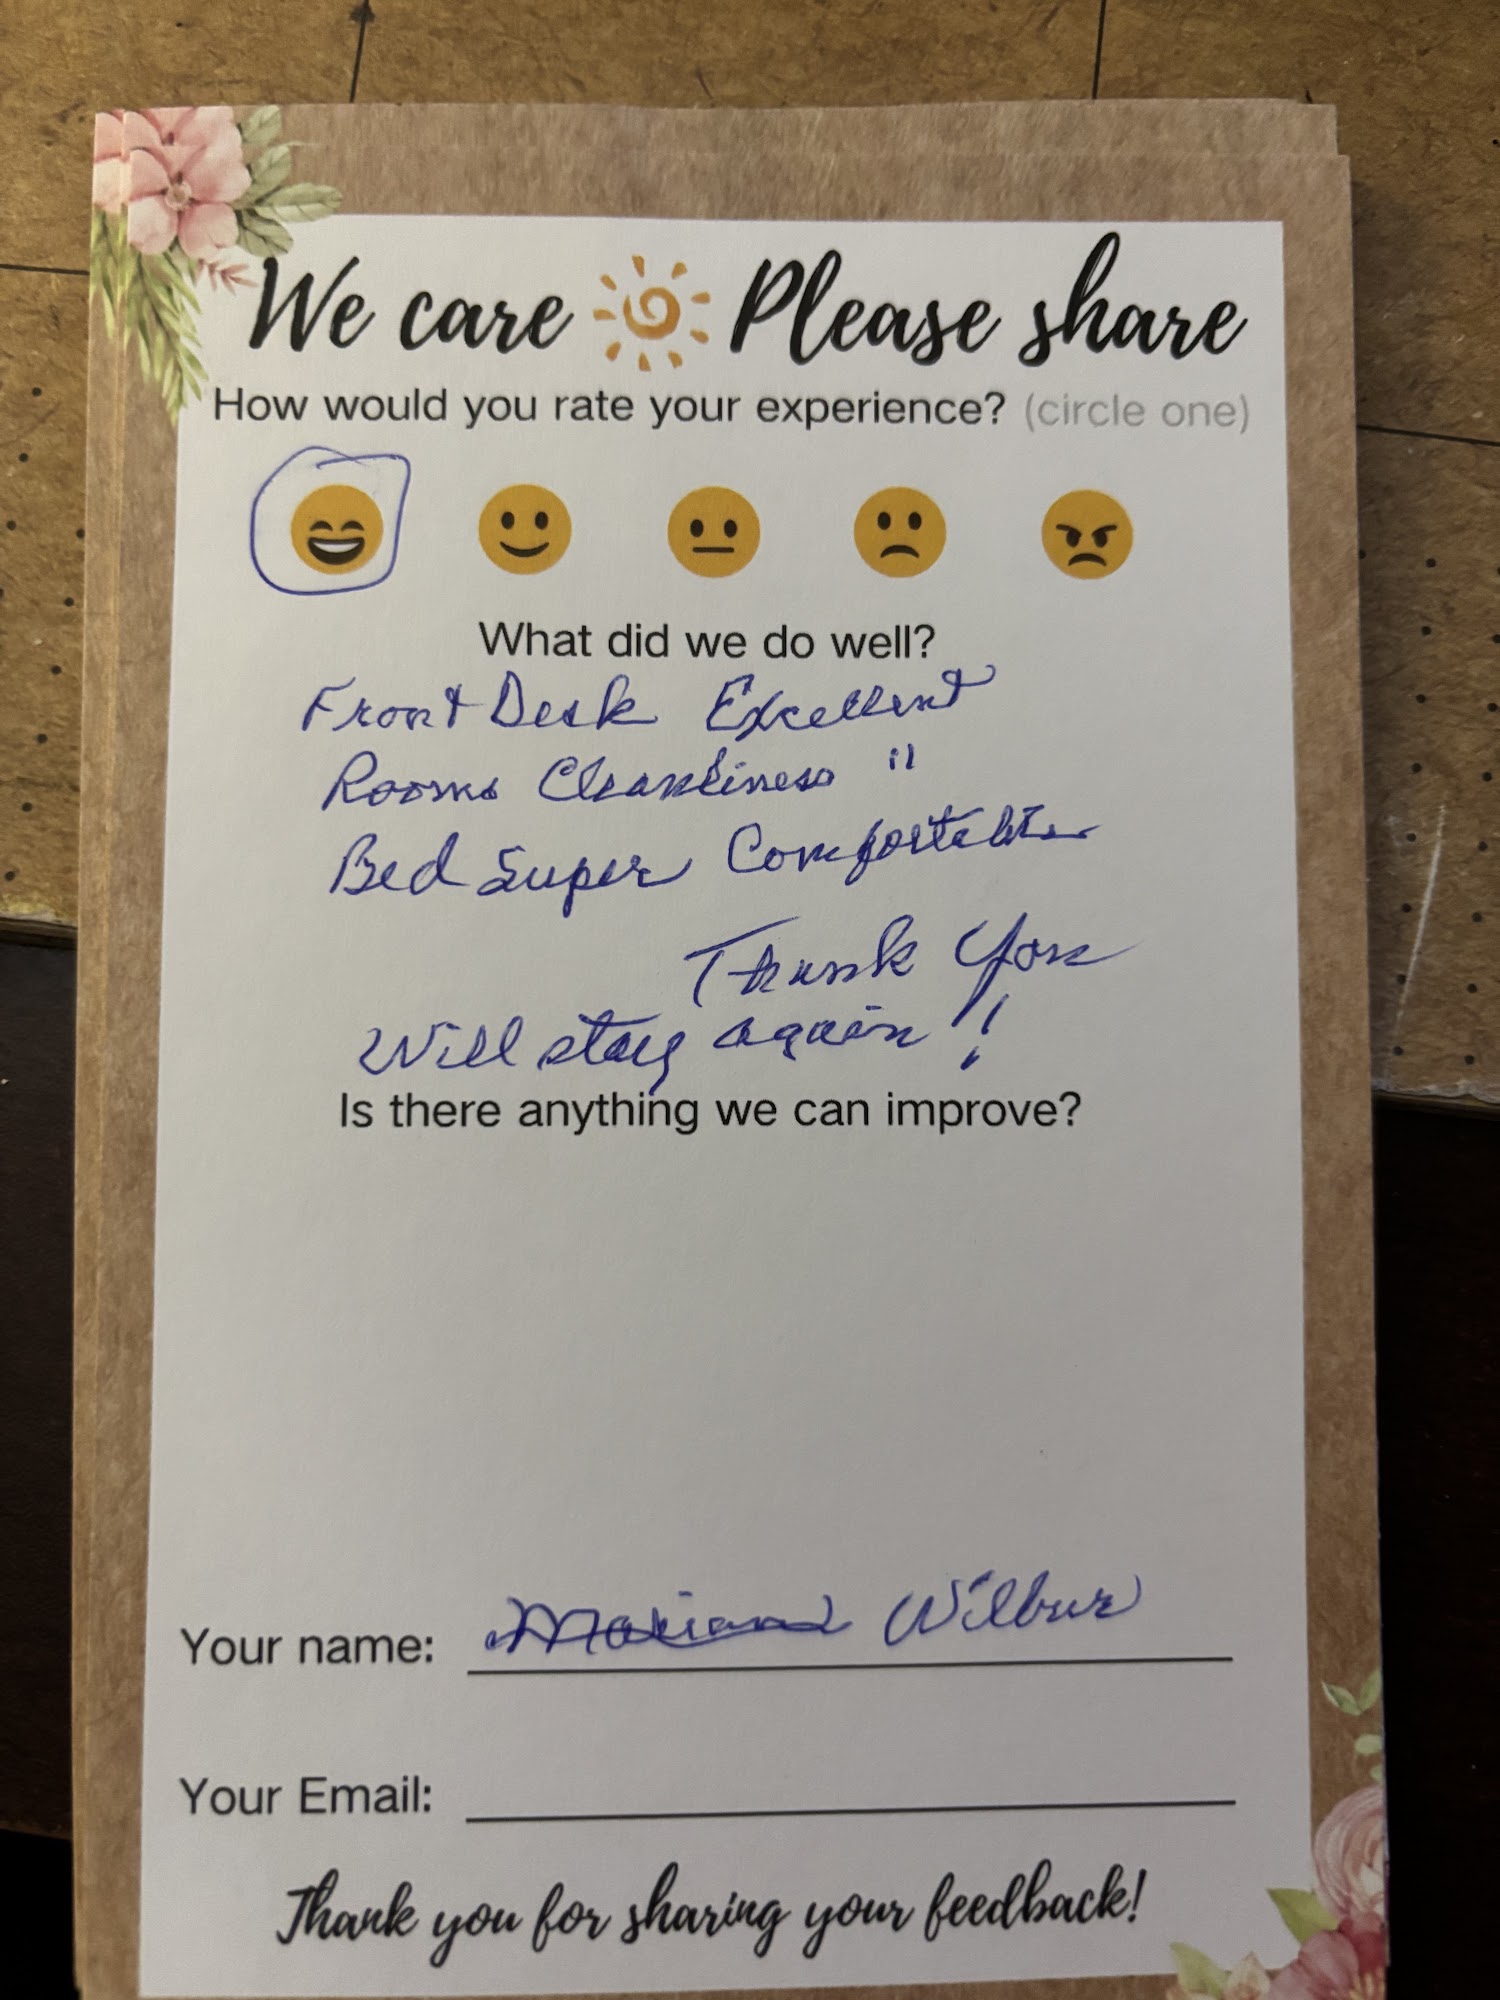 We care Please share
How would you rate your experience? (circle one)
What did we do well?
Front Desk Excellent
Rooms Cleanliness "
Bed Super Comfortable
Thank You
Will stay again!!
Is there anything we can improve?
Your name: Wilbur
Your Email:
Thank you for sharing your feedback!